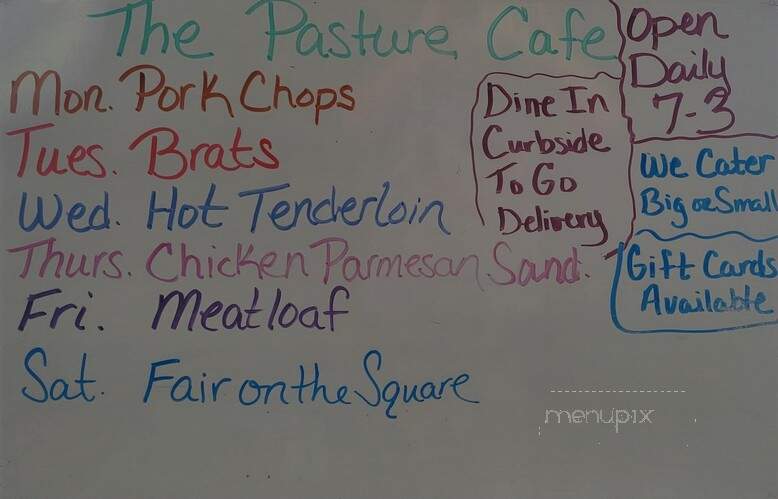 The Pasture Cafe
Mon. Pork Chops
Tues. Brats
Wed. Hot Tenderloin
Thurs. Chicken Parmesan Sand.
Fri. Meatloaf
Sat. Fair on the Square
Dine In
Curbside
To Go
Delivery
Open
Daily
7-3
We Cater
Big or Small
Gift Cards
Available
menupix